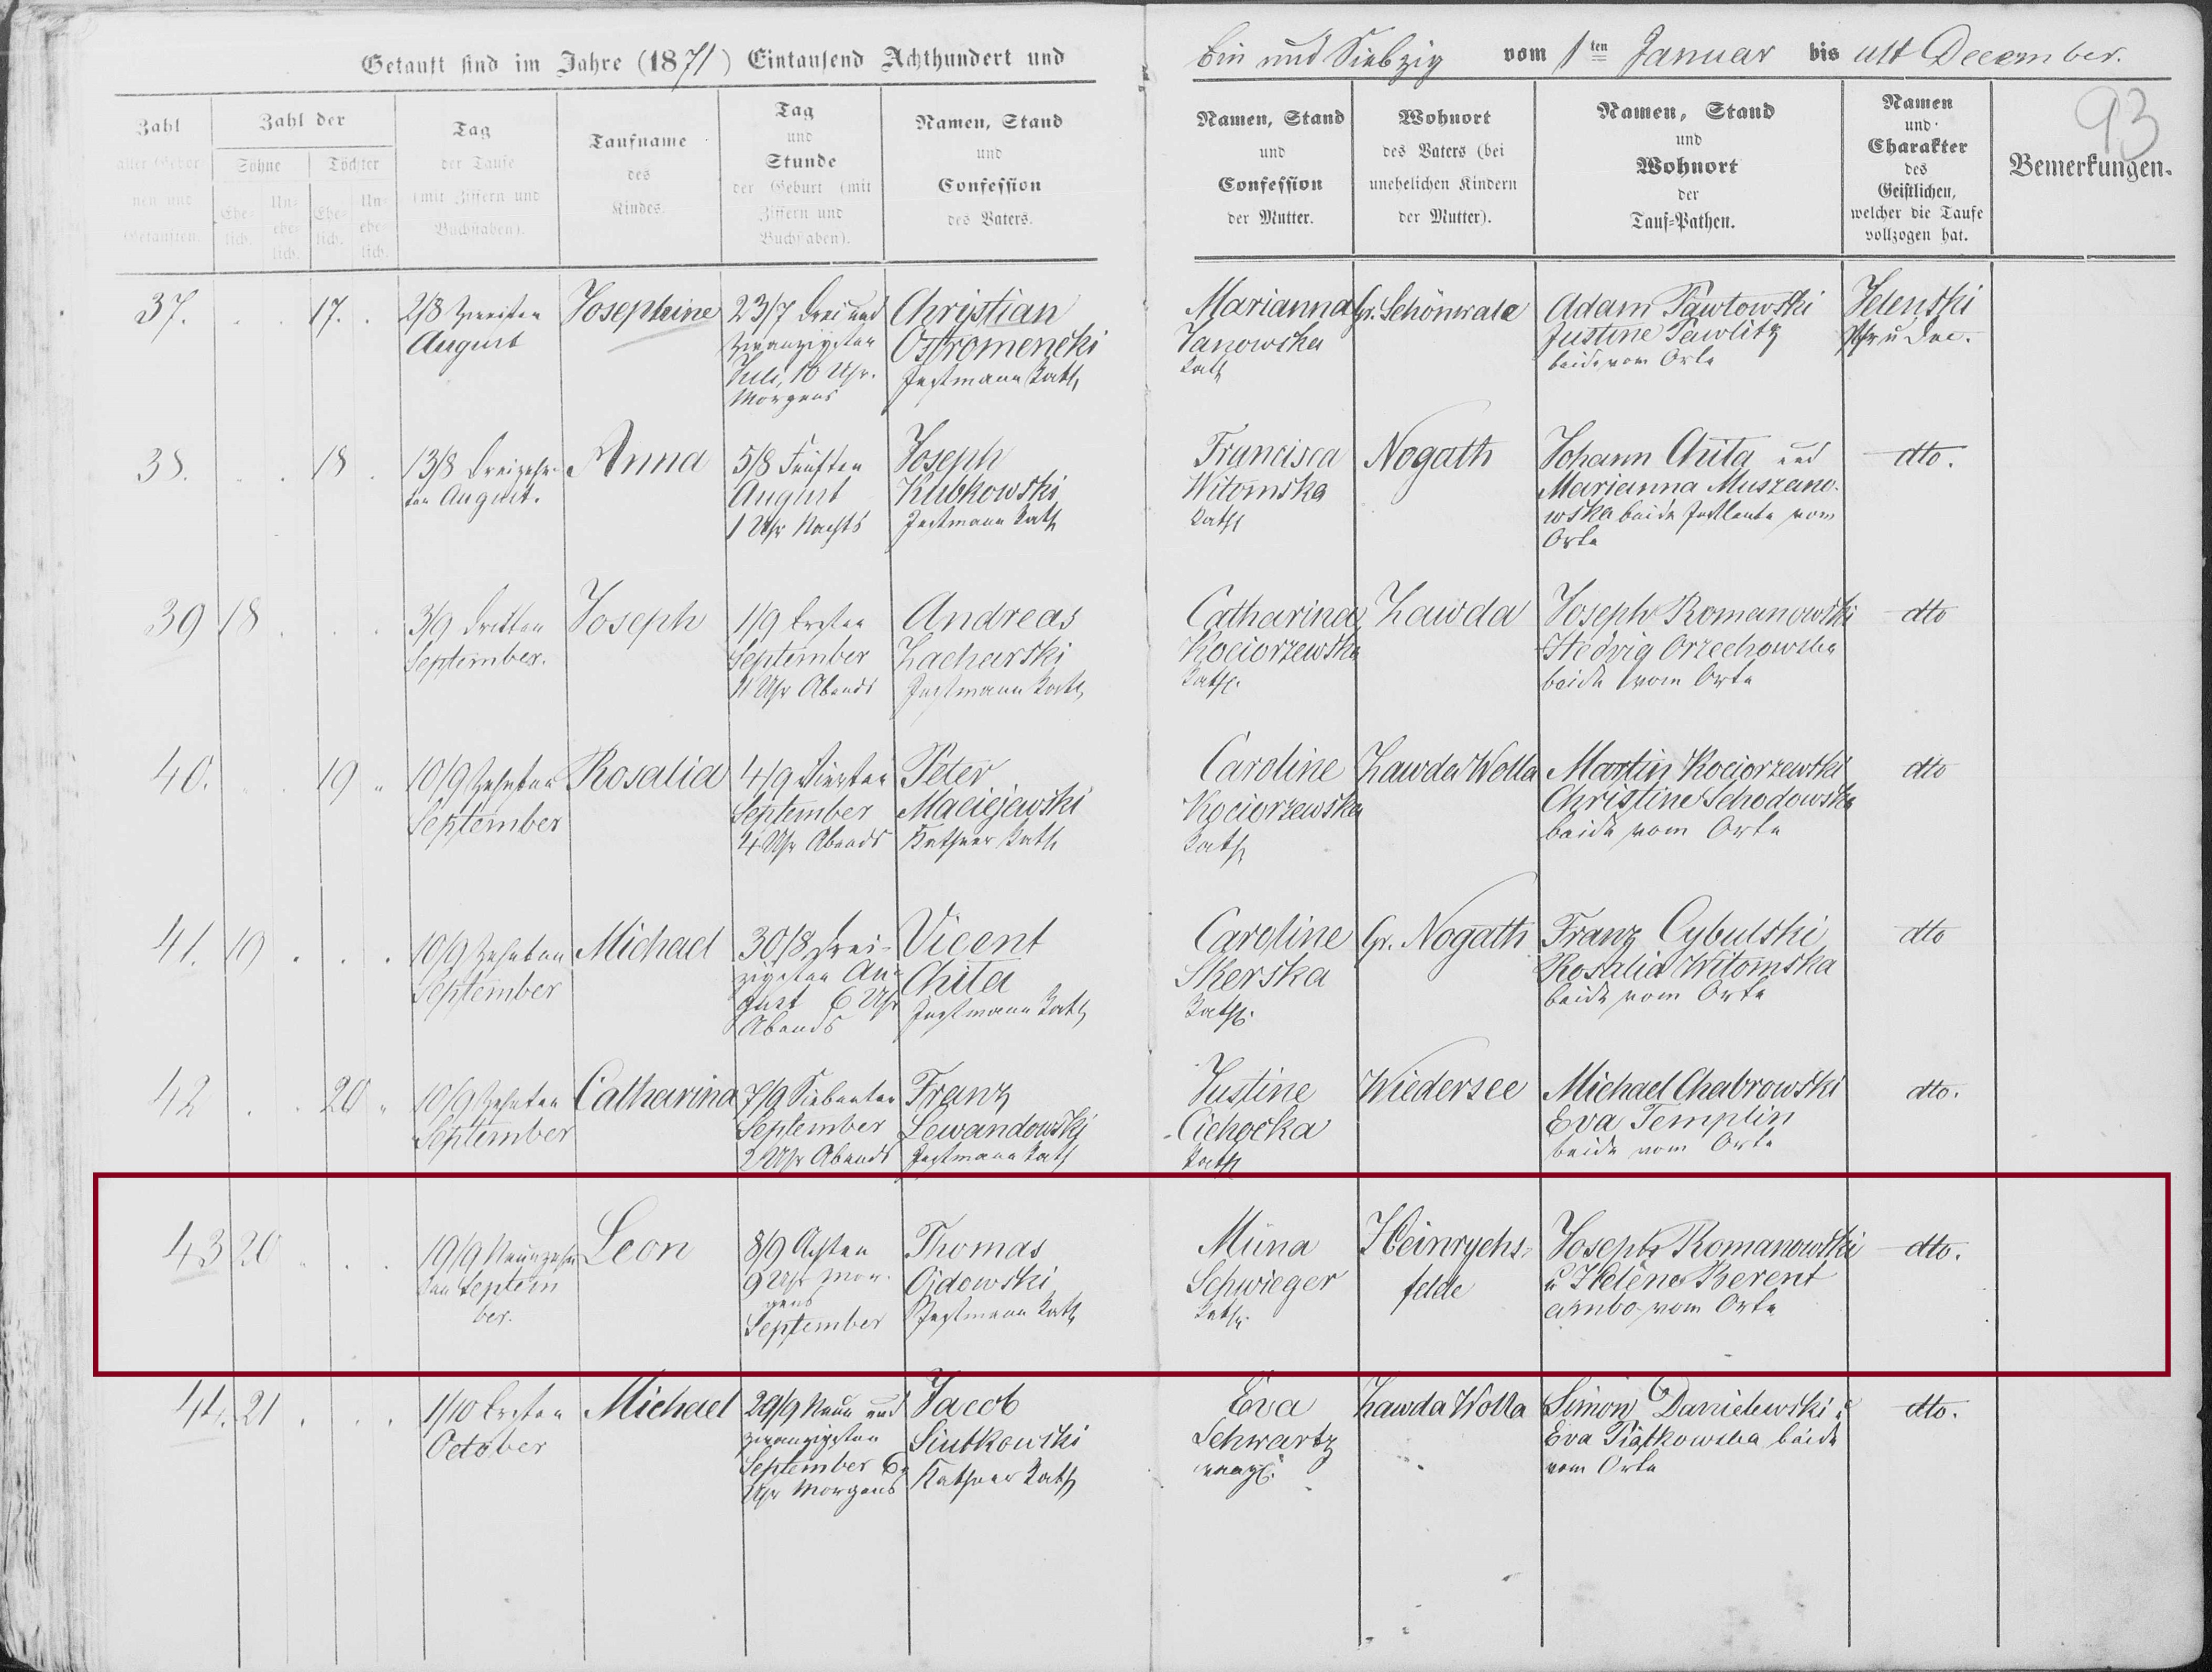 Getauft sind im Jahre (1871) Eintausend Achthundert und
Ein und Siebzig vom 1ten Januar bis ult December.
93
Zahl
aller Gebor-
nen und
Getauften.
Zahl der
Söhne
Töchter
Ehe-
lich.
Un-
ehe-
lich.
Ehe-
lich.
Un-
ehe-
lich.
Tag
der Taufe
(mit Ziffern und
Buchstaben).
Taufname
des
Kindes.
Tag
und
Stunde
der Geburt (mit
Ziffern und
Buchstaben).
Namen, Stand
und
Confession
des Vaters.
Namen, Stand
und
Confession
der Mutter.
Wohnort
des Vaters (bei
unehelichen Kindern
der Mutter).
Namen, Stand
und
Wohnort
der
Tauf=Pathen.
Namen
und
Charakter
des
Geistlichen,
welcher die Taufe
vollzogen hat.
Bemerkungen.
37.
17.
2/8 Zweiten
August
Josephine
23/7 Drei und
zwanzigsten
Juli, 10 Uhr.
Morgens
Christian
Ostromencki
Instmann Kath
Marianna
Janowska
Kath
Gr. Schönwale
Adam Pawtowski
Justine Pawlitz
beide vom Orte
Jelenski
Pfr u Dec.
38.
18
13/8 Dreizehn-
ten August.
Anna
5/8 Fünften
August
1 Uhr Nachts
Joseph
Kubkowski
Instmann Kath
Francisca
Witomska
Kath
Nogath
Johann Chita und
Marianna Muszano-
wska beide Instleute vom
Orte
dto.
39
18
3/9 Dritten
September.
Joseph
1/9 Ersten
September
11 Uhr Abends
Andreas
Zacharski
Instmann Kath
Catharina
Kociorzewska
Kath.
Zawda
Joseph Romanowski
Hedvig Orzechowska
beide vom Orte
dto
40.
19
10/9 Zehnten
September
Rosalia
4/9 Vierten
September
4 Uhr Abends
Peter
Maciejewski
Kathner Kath
Caroline
Kociorzewska
Kath
Zawda Wolla
Martin Kociorzewski
Christine Schodowska
beide vom Orte
dto
41.
19
10/9 Zehnten
September
Michael
30/8 Drei-
zigsten Au-
gust 6 Uhr
Abends
Vicent
Chita
Instmann Kath
Caroline
Skerska
Kath.
Gr. Nogath
Franz Cybulski
Rosalia Witomska
beide vom Orte
dto
42
20
10/9 Zehnten
September
Catharina
7/9 Siebenten
September
2 Uhr Abends
Franz
Lewandowski
Instmann Kath
Justine
Cichocka
Kath
Wiedersee
Michael Chabrowski
Eva Templin
beide vom Orte
dto.
43
20
19/9 Neunzehn
ten Septem
ber.
Leon
8/9 Achten
9 Uhr Mor-
gens
September
Thomas
Ojdowski
Instmann Kath
Minna
Schwieger
Kath.
Heinrychs-
felde
Joseph Romanowski
u Helene Berent
ambo vom Orte
dto.
44.
21
1/10 Ersten
October
Michael
29/9 Neun und
zwanzigsten
September 6
Uhr Morgens
Jacob
Siutkowski
Kathner Kath
Eva
Schwartz
evang.
Zawda Wolla
Simon Danielewski u
Eva Piątkowska beide
vom Orte
dto.